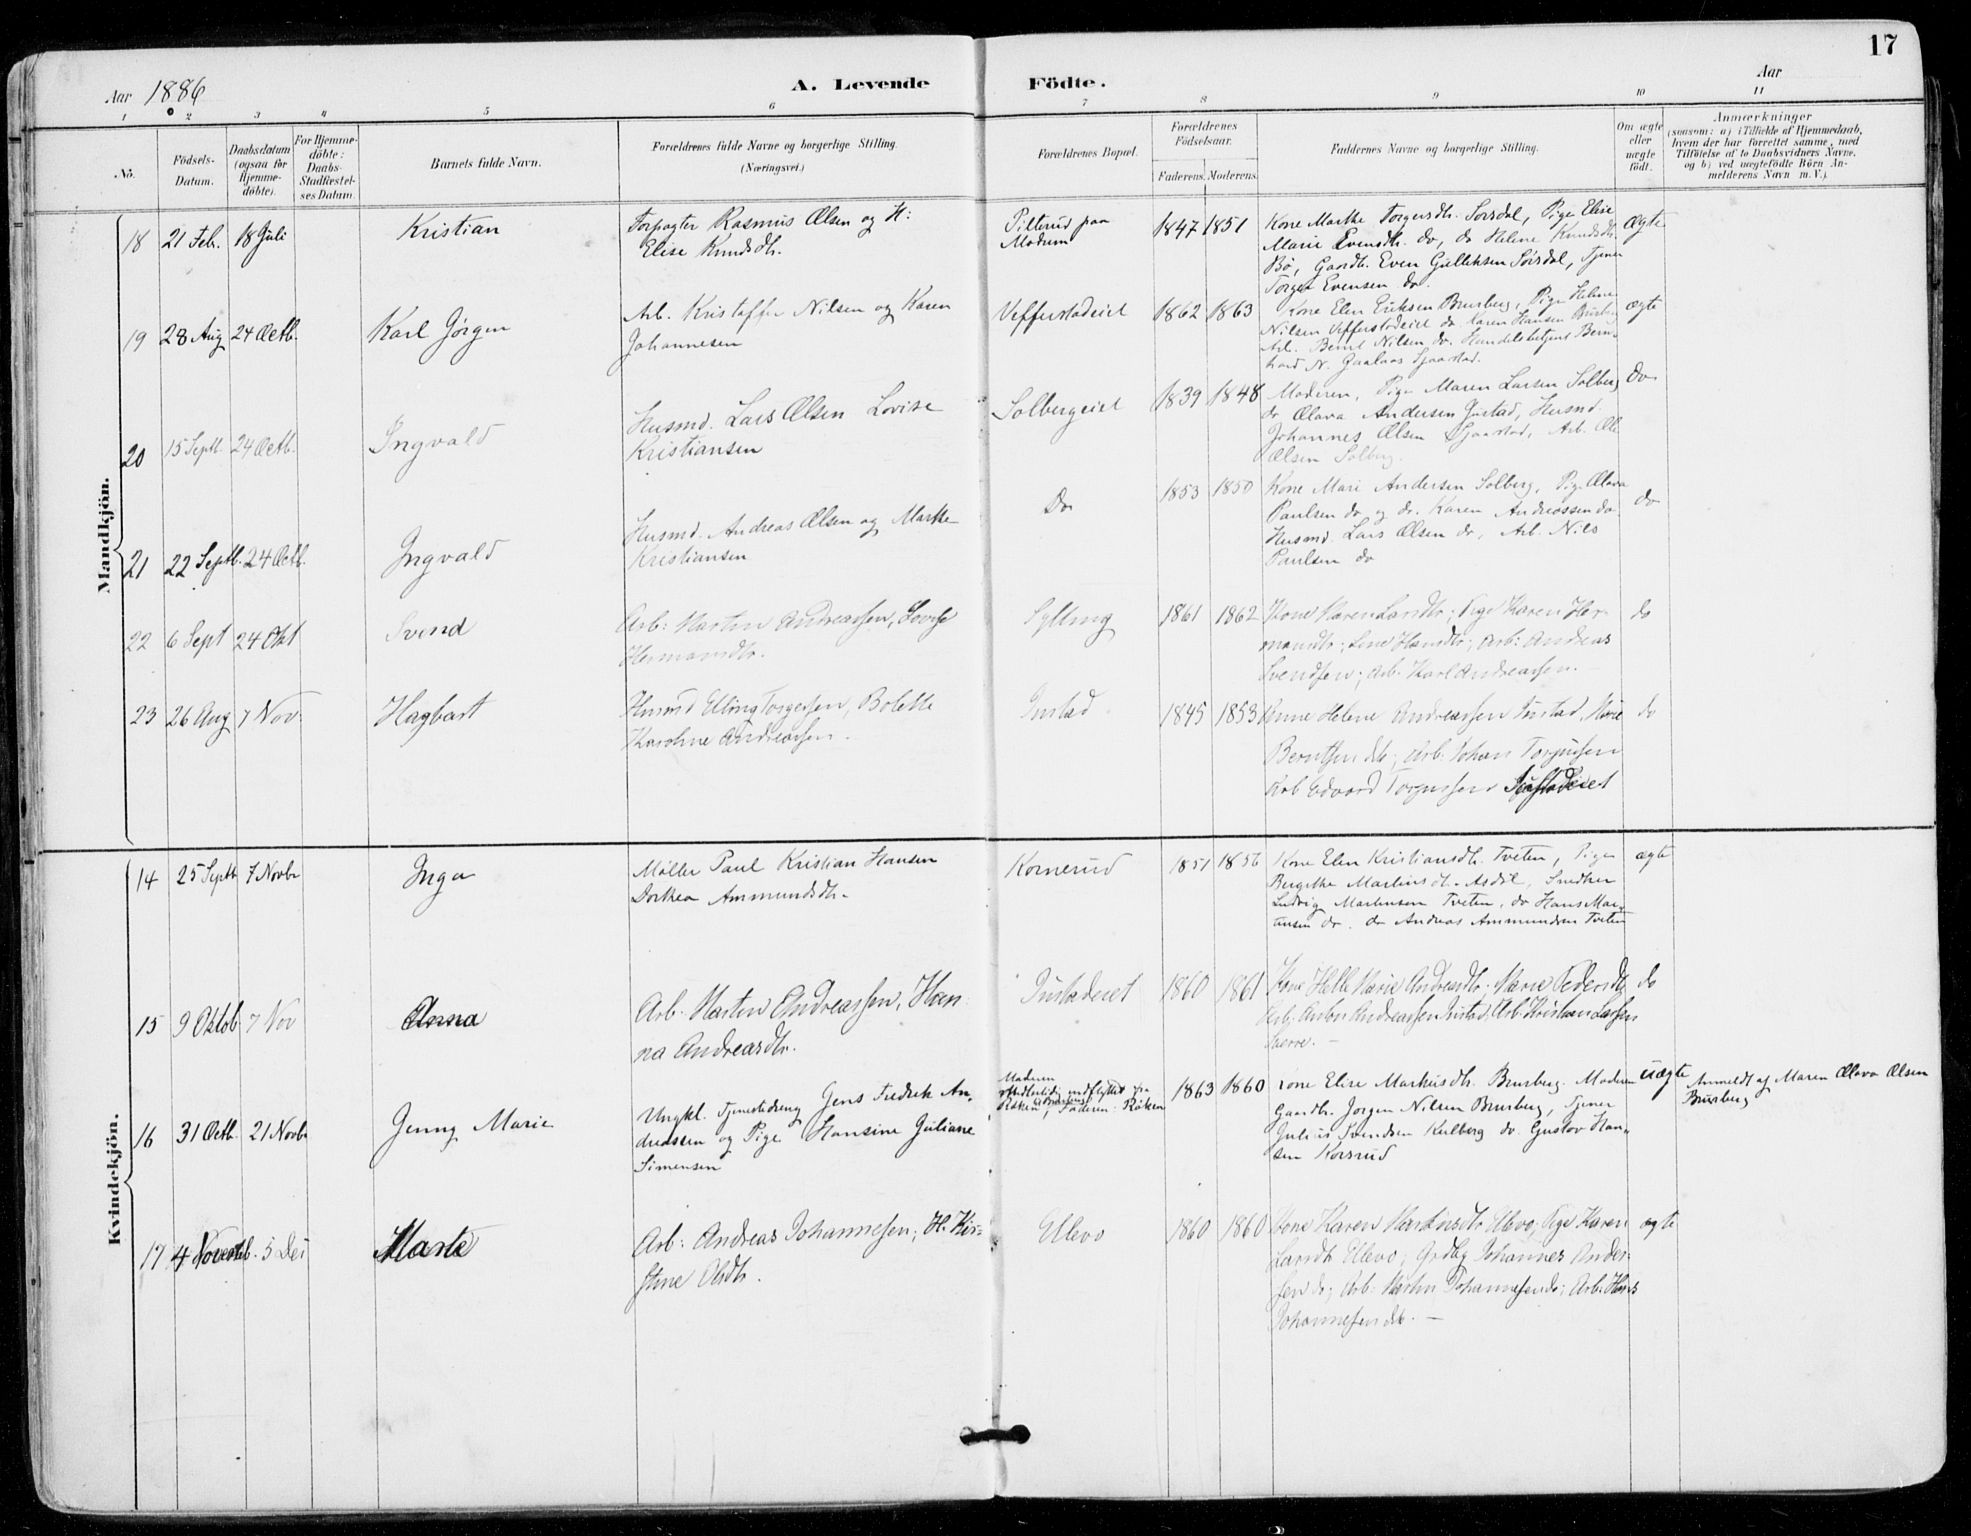 17
Aar 1886
A. Levende Födte.
Aar
1 2 3 4 5 6 7 8 9 10 11
No.
Födsels-Datum.
Daabsdatum (ogsaa för Hjemme-döbte).
For Hjemme-döbte: Daabs-Stadfestel-ses Datum.
Barnets fulde Navn.
Forældrenes fulde Navne og borgerlige Stilling. (Næringsvei.)
Forældrenes Bopæl.
Forældrenes Födselsaar.
Faderens. Moderens.
Faddernes Navne og borgerlige Stilling.
Om ægte eller uægte födt.
Anmærkninger
(saasom: a) i Tilfælde af Hjemmedaab,
hvem der har forrettet samme, med
Tilföielse af to Daabsvidners Navne,
og b) ved uægtefödte Börn An-
melderens Navn m. V.).
Mandkjön.
18 21 Feb. 18 Juli Kristian
Forpagter Rasmus Olsen og H:
Elise Knudsdtr.
Pilterud paa
Modum
1847 1851
Kone Marthe Torgersdtr. Sørsdal, Pige Elise
Marie Evensdtr. do, do Helene Knudsdtr.
Bø, Gaardb. Even Gulliksen Sørsdal, Tjener
Torger Evensen do.
Ægte
19 28 Aug 24 Octb. Karl Jørgen
Arb. Kristoffer Nilsen og Karen
Johannesen
Vefferstadeiet
1862 1863
Kone Elen Eriksen Brusberg, Pige Helene
Nilsen Vefferstadeiet do Karen Hansen
Arb. Bernt Nilsen do. Handelsbetjent Bern-
hard N. Gaalaas Sjaastad.
ægte
20 15 Septb. 24 Octb. Ingvald
Husmd. Lars Olsen Lovise
Kristiansen
Solbergeiet
1839 1848
Moderen, Pige Maren Larsen Solberg
do Olava Andersen Justad, Husmd.
Johannes Olsen Sjaastad, Arb. Ole
Olsen Solberg.
do
21 22 Septb. 24 Octb. Ingvald
Husmd. Andreas Olsen og Marthe
Kristiansen
Do
1853 1850
Kone Mari Andersen Solberg, Pige Olava
Paulsen do og do. Karen Andreassen do
Husmd. Lars Olsen do, Arb. Nils
Paulsen do
do
22 6 Sept 24 Okt Svend
Arb: Martin Andreassen, Lovise
Hermansdtr.
Sylling
1861 1862
Kone Maren Larsdtr; Pige Karen Her-
mansdtr; Line Hansdtr; Arb: Andreas
Svendsen; Arb. Karl Andreassen. —
do
23 26 Aug 7 Nov Hagbart
Husmd Elling Torgersen, Bolette
Karoline Andreassen.
Justad.
1845 1853
Anne Helene Andreassen Justad, Marie
Berntsen do; Arb: Johan Torgersen
Arb Edvard Torgersen Sjaastadeiet
do
Kvindekjön.
14 25 Septb 7 Novbr Inga
Møller Paul Kristian Hansen
Dorthea Ammundsdtr.
Kornerud
1851 1856
Kone Elen Kristiansdtr. Tveten, Pige
Bergithe Martinsdtr. Asdøl, Snedker
Ludvig Martinsen Tveten, do Hans Mar-
tinsen do. do Andreas Ammundsen Tveten
ægte
15 9 Oktob. 7 Nov Anna
Arb. Martin Andreassen, Han-
na Andreasdtr.
Justaderet
1860 1861
Kone Helle Marie Andreasdtr. Marie Pedersdtr
Arb; Anton Andreassen Justad; Arb. Kristian Larsen
do
16 31 Octb. 21 Novbr Jenny Marie
Ungkl. Tjenestedreng Jens Fredrik An-
dreassen og Pige Hansine Juliane
Simensen
Moderen
midlertidig indflyttet fra
Røken, Brusberg Faderen: Røken
1863 1860
Kone Elise Markusdtr. Brusberg. Moderen
Gaardbr. Jørgen Nilsen Brusberg, Tjener
Julius Svendsen Kulberg do. Gustav Han-
sen Korsrud
uægte
Anmeldt af Maren Olava Olsen
Brusberg
17 4 Novemb. 5 Dec Marte
Arb: Andreas Johannesen; H. Kir-
stine Olsdtr.
Ellevo
1860 1860
Kone Karen Martinsdtr Ellevo; Pige Karen
Larsdtr Ellevo; Grdbg Johannes Ander-
sen do; Arb: Martin Johannesen do; Arb. Hans
Johannesen do. —
ægte